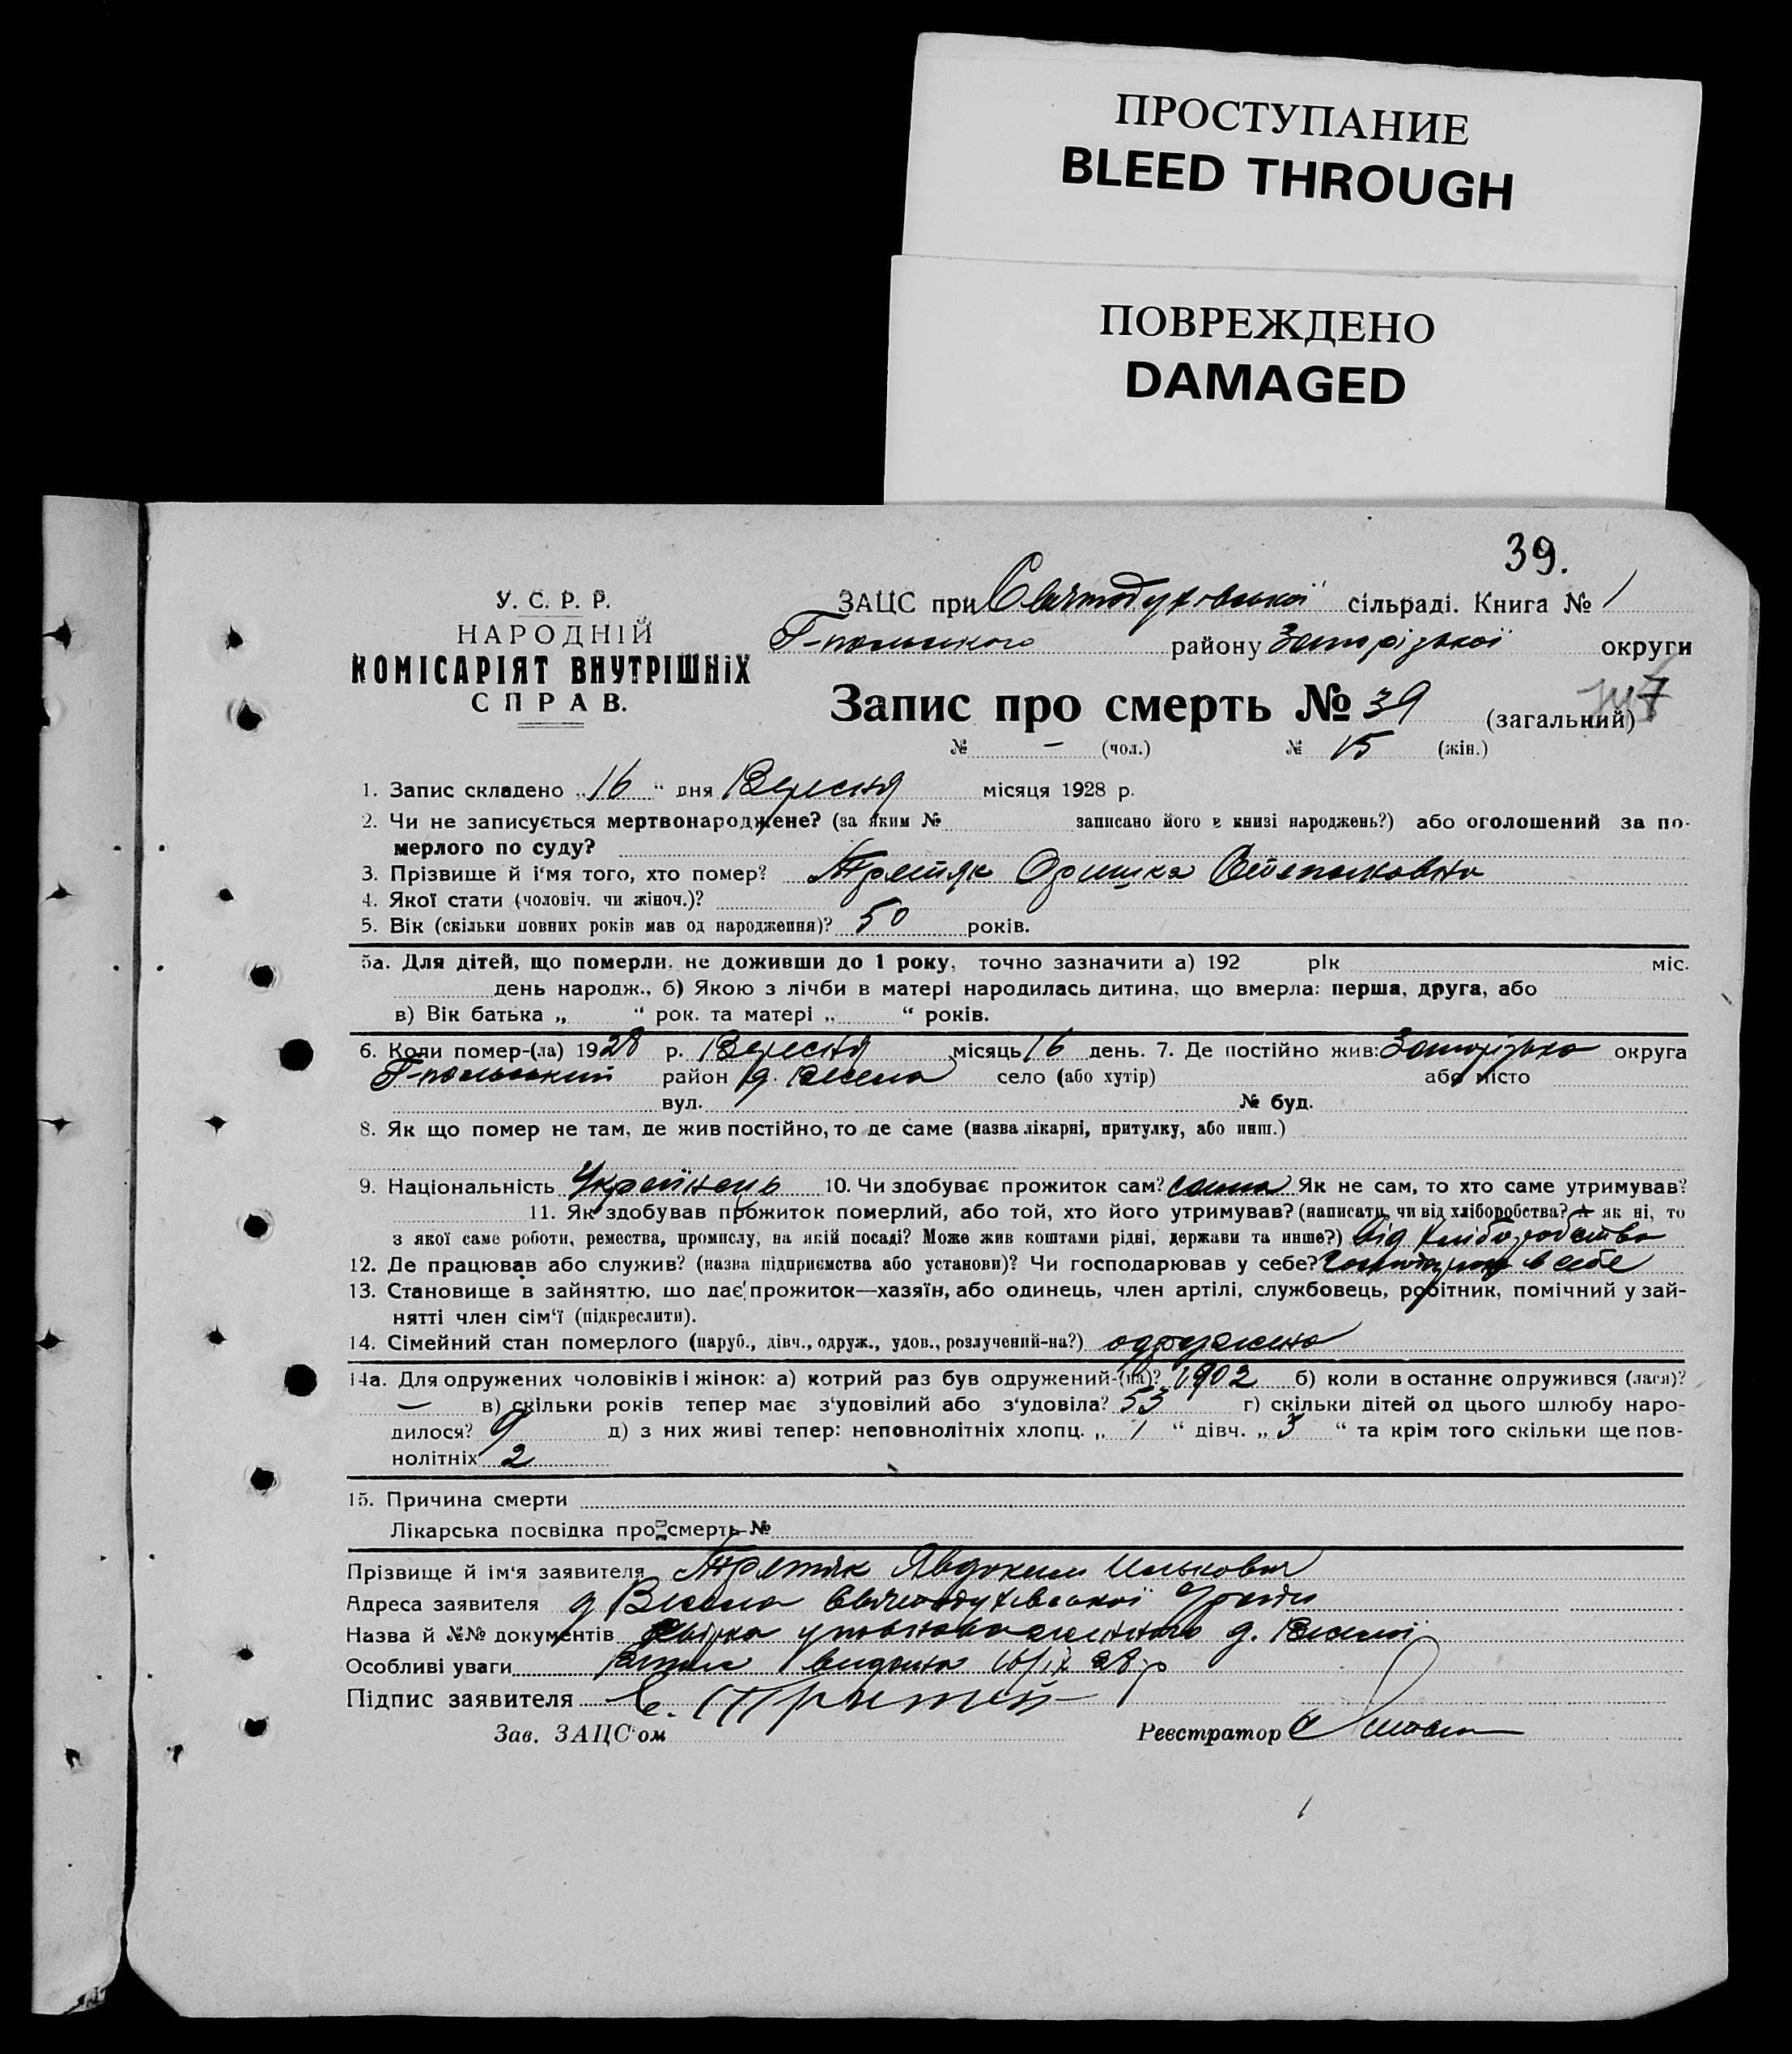 ПРОСТУПАНИЕ
BLEED THROUGH
ПОВРЕЖДЕНО
DAMAGED
39.
У. С. Р. Р.
НАРОДНІЙ
КОМІСАРІЯТ ВНУТРІШНІХ
СПРАВ.
ЗАЦС при Святодухівської сільраді. Книга № 1
Г-польського району Запорізької округи
Запис про смерть № 39 (загальний) 7
№ — (чол.) № 15 (жін.)
1. Запис складено „16“ дня Вересня місяця 1928 р.
2. Чи не записується мертвонароджене? (за яким № записано його в книзі народжень?) або оголошений за по-
мерлого по суду?
3. Прізвище й і'мя того, хто помер? Третяк Оришка Степановна
4. Якої стати (чоловіч. чи жіноч.)?
5. Вік (скільки повних років мав од народження)? 50 років.
5а. Для дітей, що померли, не доживши до 1 року, точно зазначити а) 192 рік міс.
день народж., б) Якою з лічби в матері народилась дитина, що вмерла: перша, друга, або
в) Вік батька „ “ рок. та матері „ “ років.
6. Коли помер-(ла) 1928 р. Вересня місяць 16 день. 7. Де постійно жив: Запорізька округа
Г-польський район д. Весела село (або хутір) або місто
вул. № буд.
8. Як що помер не там, де жив постійно, то де саме (назва лікарні, притулку, або инш.)
9. Національність Українець 10. Чи здобуває прожиток сам? сама Як не сам, то хто саме утримував?
11. Як здобував прожиток померлий, або той, хто його утримував? (написати, чи від хліборобства? А як ні, то
з якої саме роботи, ремества, промислу, на якій посаді? Може жив коштами рідні, держави та инше?) від хліборобства
12. Де працював або служив? (назва підприємства або установи)? Чи господарював у себе? в себе
13. Становище в зайняттю, що дає прожиток—хазяїн, або одинець, член артілі, службовець, робітник, помічний у зай-
нятті член сім'ї (підкреслити).
14. Сімейний стан померлого (паруб., дівч., одруж., удов., розлучений-на?) одружена
14а. Для одружених чоловіків і жінок: а) котрий раз був одружений-(на)? 1902 б) коли в останнє одружився (лася)?
— в) скільки років тепер має з'удовілий або з'удовіла? 53 г) скільки дітей од цього шлюбу наро-
дилося? 9 д) з них живі тепер: неповнолітніх хлопц. „ 1 “ дівч. „ 3 “ та крім того скільки ще пов-
нолітніх 2
15. Причина смерти
Лікарська посвідка про смерть №
Прізвище й ім'я заявителя Третяк Явдоким Илькович
Адреса заявителя д Весела Святодухівської
Назва й №№ документів уповноваженного д. Веселої
Особливі уваги видана 16/ІХ 28 р
Підпис заявителя
Зав. ЗАЦС'ом Реєстратор